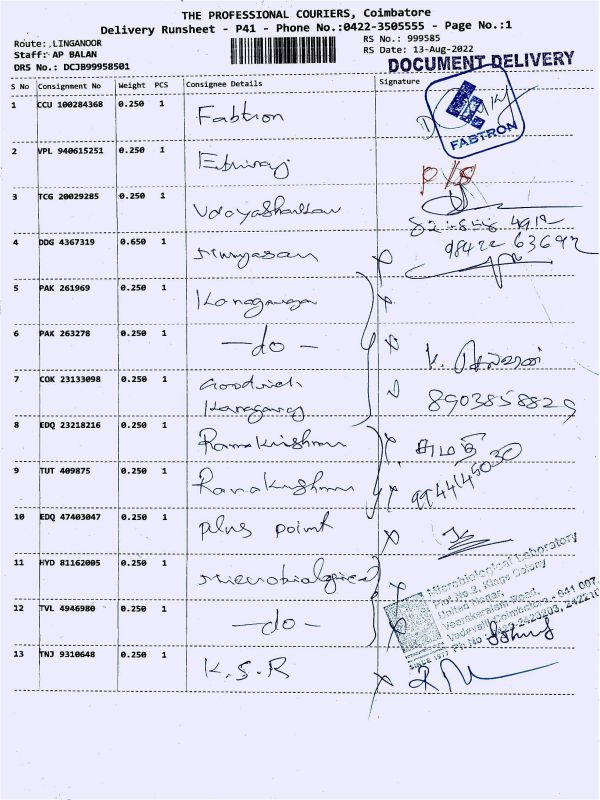 THE PROFESSIONAL COURIERS, Coimbatore
Delivery Runsheet - P41 - Phone No.:0422-3505555 - Page No.:1
Route: LINGANOOR
Staff: AP BALAN
DRS No.: DCJB99958501
RS No.: 999585
RS Date: 13-Aug-2022
DOCUMENT DELIVERY
S No Consignment No Weight PCS Consignee Details Signature
1 CCU 100284368 0.250 1 Fabtron
FABTRON
2 VPL 940615251 0.250 1
P/S
3 TCG 20029285 0.250 1 Udayashankar
4 DDG 4367319 0.650 1 Murugasan
98422 63692
5 PAK 261969 0.250 1
6 PAK 263278 0.250 1 -do-
7 COK 23133098 0.250 1 Goodrich
8903858829
8 EDQ 23218216 0.250 1 Ramakrishnan
சுமதி
9 TUT 409875 0.250 1 Ramakrishnan
9944145030
10 EDQ 47403047 0.250 1 plus point
11 HYD 81162005 0.250 1 Microbiological
Microbiological Laboratory
Plot No.2, Kings Colony
United Nagar,
Veerakeralam Road,
Vadavalli, Coimbatore - 641 007.
12 TVL 4946980 0.250 1 -do-
13 TNJ 9310648 0.250 1 K.S.R